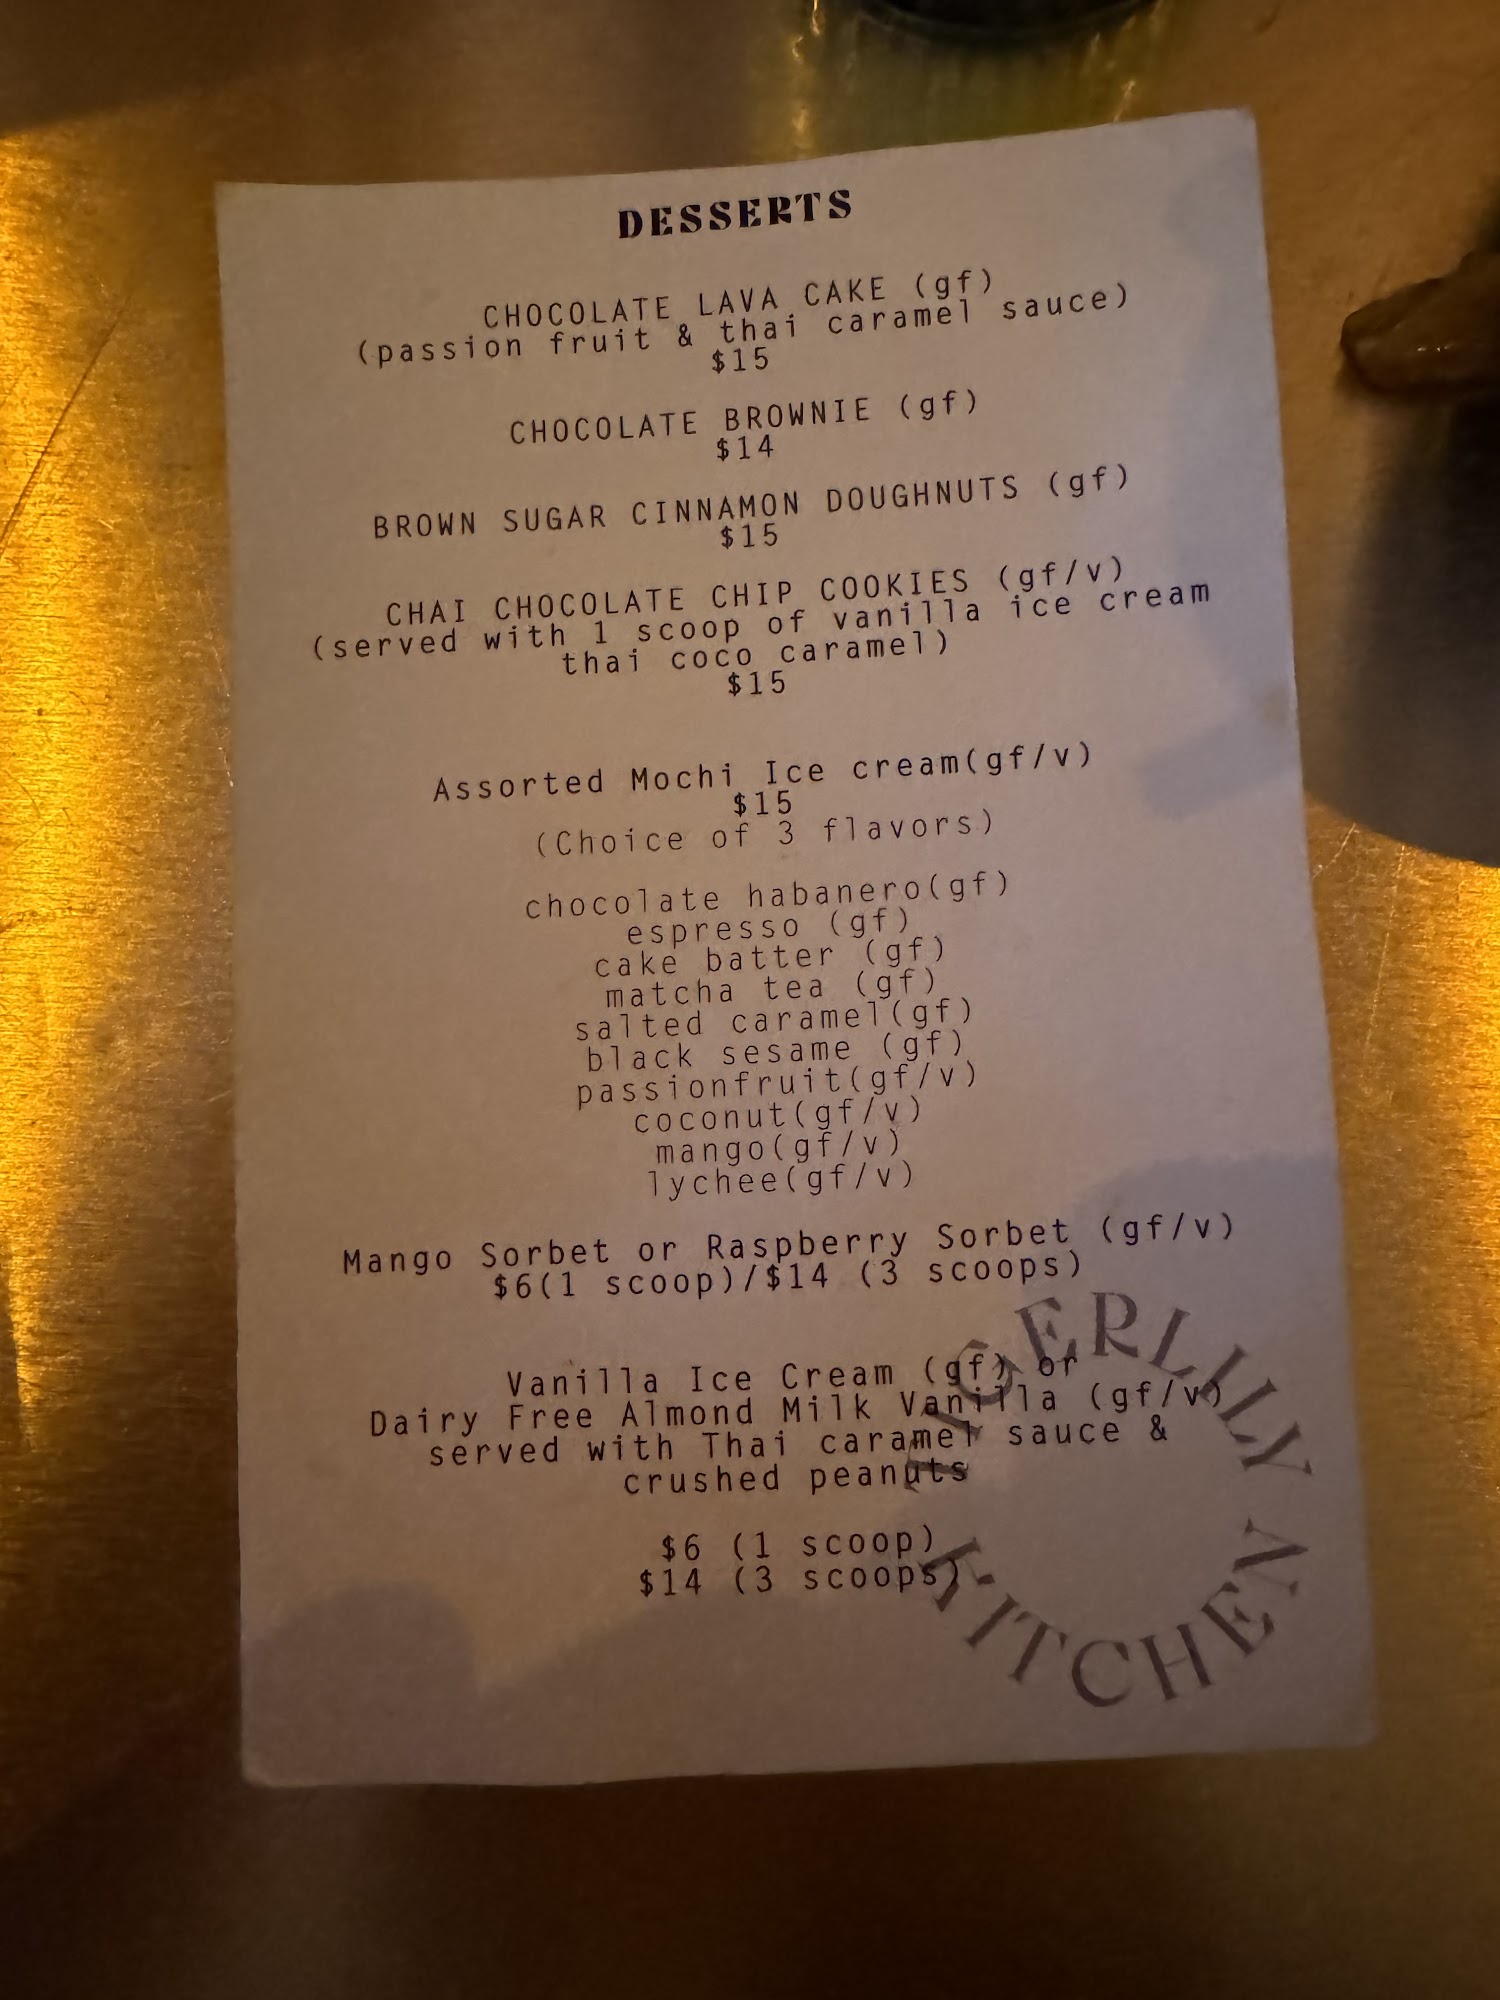 DESSERTS
CHOCOLATE LAVA CAKE (gf)
(passion fruit & thai caramel sauce)
$15
CHOCOLATE BROWNIE (gf)
$14
BROWN SUGAR CINNAMON DOUGHNUTS (gf)
$15
CHAI CHOCOLATE CHIP COOKIES (gf/v)
(served with 1 scoop of vanilla ice cream
thai coco caramel)
$15
Assorted Mochi Ice cream(gf/v)
$15
(Choice of 3 flavors)
chocolate habanero(gf)
espresso (gf)
cake batter (gf)
matcha tea (gf)
salted caramel(gf)
black sesame (gf)
passionfruit(gf/v)
coconut(gf/v)
mango(gf/v)
lychee(gf/v)
Mango Sorbet or Raspberry Sorbet (gf/v)
$6(1 scoop)/$14 (3 scoops)
Vanilla Ice Cream (gf) or
Dairy Free Almond Milk Vanilla (gf/v)
served with Thai caramel sauce &
crushed peanuts
$6 (1 scoop)
$14 (3 scoops)
TIGERLILY
KITCHEN